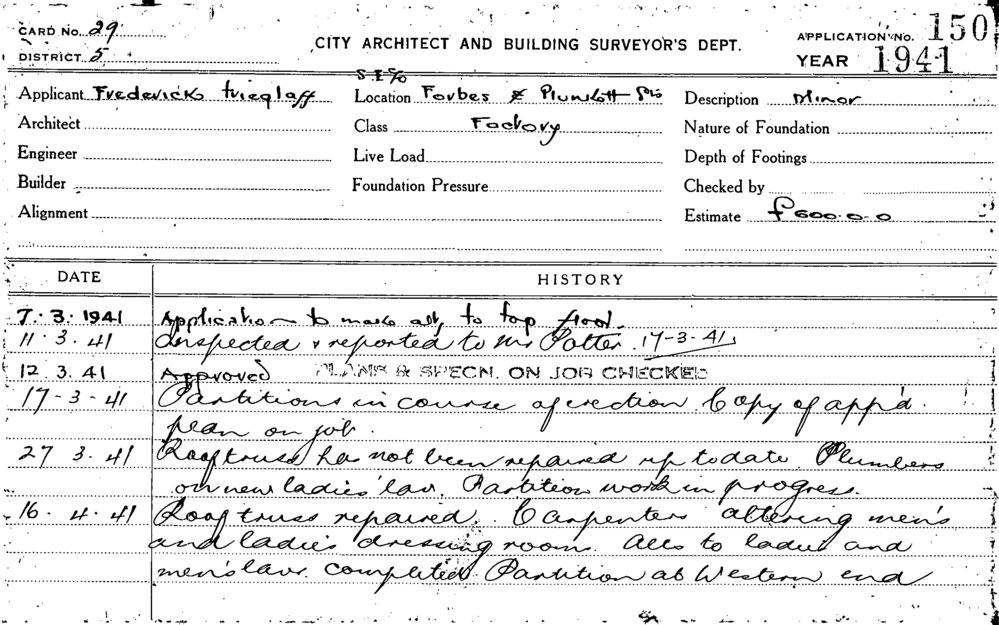 CARD No. 29
DISTRICT 5
CITY ARCHITECT AND BUILDING SURVEYOR'S DEPT.
APPLICATION No. 150
YEAR 1941
Applicant Frederick
Location Forbes &
Description Minor
Architect
Class Factory
Nature of Foundation
Engineer
Live Load
Depth of Footings
Builder
Foundation Pressure
Checked by
Alignment
Estimate £600.0.0
DATE HISTORY
7.3.1941 Application to make alt, to top floor.
11.3.41 Inspected & reported to Mr Potter. 17-3-41
12 3.41 Approved PLANS & SPECN. ON JOB CHECKED
17-3-41 Partitions in course of erection Copy of app'd.
plan on job.
27 3.41 Roof truss has not been repaired up to date. Plumbers
on new ladies' lav. Partition work in progress.
16.4.41 Roof truss repaired. Carpenters altering men's
and ladies dressing room. Alts to ladies and
men's lavs. completed. Partition at Western end